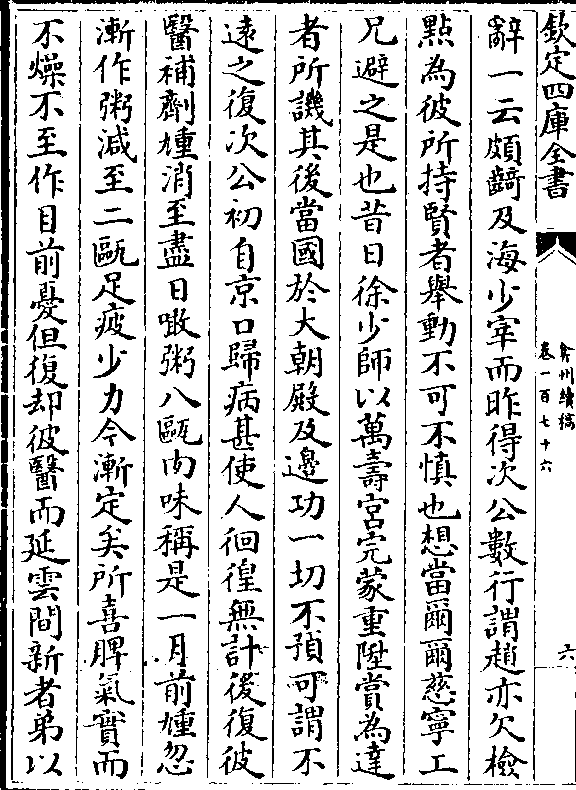 欽定四庫全書
弇州續稿
卷一百七十六
六
辭一云頗齮及海少宰而昨得次公數行謂趙亦欠檢
點為彼所持賢者舉動不可不慎也想當爾爾慈寧工
兄避之是也昔日徐少師以萬壽宮完蒙重陞賞為達
者所譏其後當國於大朝殿及邊功一切不預可謂不
遠之復次公初自京口歸病甚使人徊徨無計後復彼
醫補劑尰消至盡日噉粥八甌肉味稱是一月前尰忽
漸作粥減至二甌足疲少力今漸定矣所喜脾氣實而
不燥不至作目前憂但復却彼醫而延雲間新者弟以